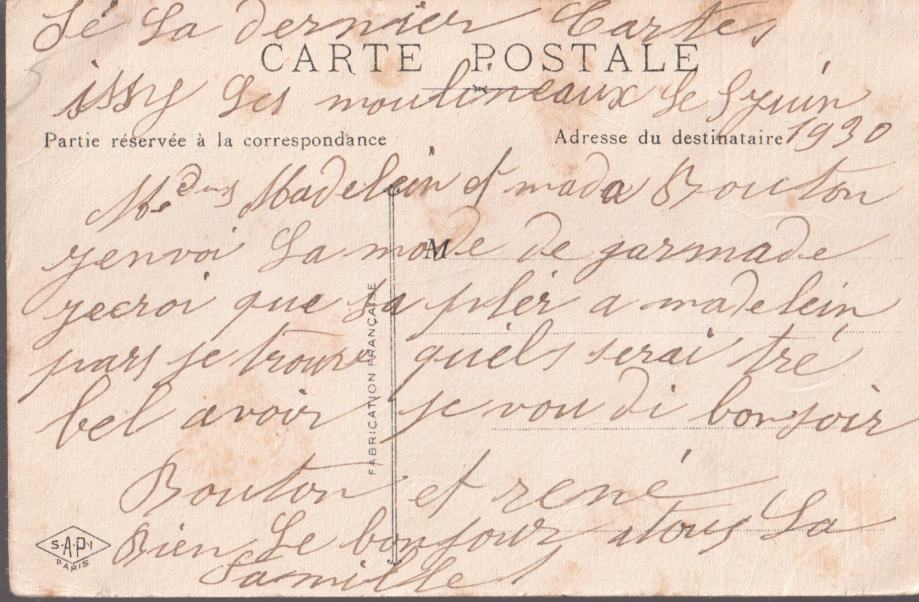 Sé La dernier Cartes
CARTE POSTALE
issy Les moulineaux Le 5 juin
1930
Partie réservée à la correspondance
Adresse du destinataire
Madelein et mada Bouton
M
jenvoi La mode de garmade
jecroi que sa plér a madelein
pars je trouve quels serai tré
bel avoir je vou di bonsoir
Bouton et rené
Bien Le bonjour atous La
famille
FABRICATION FRANÇAISE
S·A·P·I
PARIS